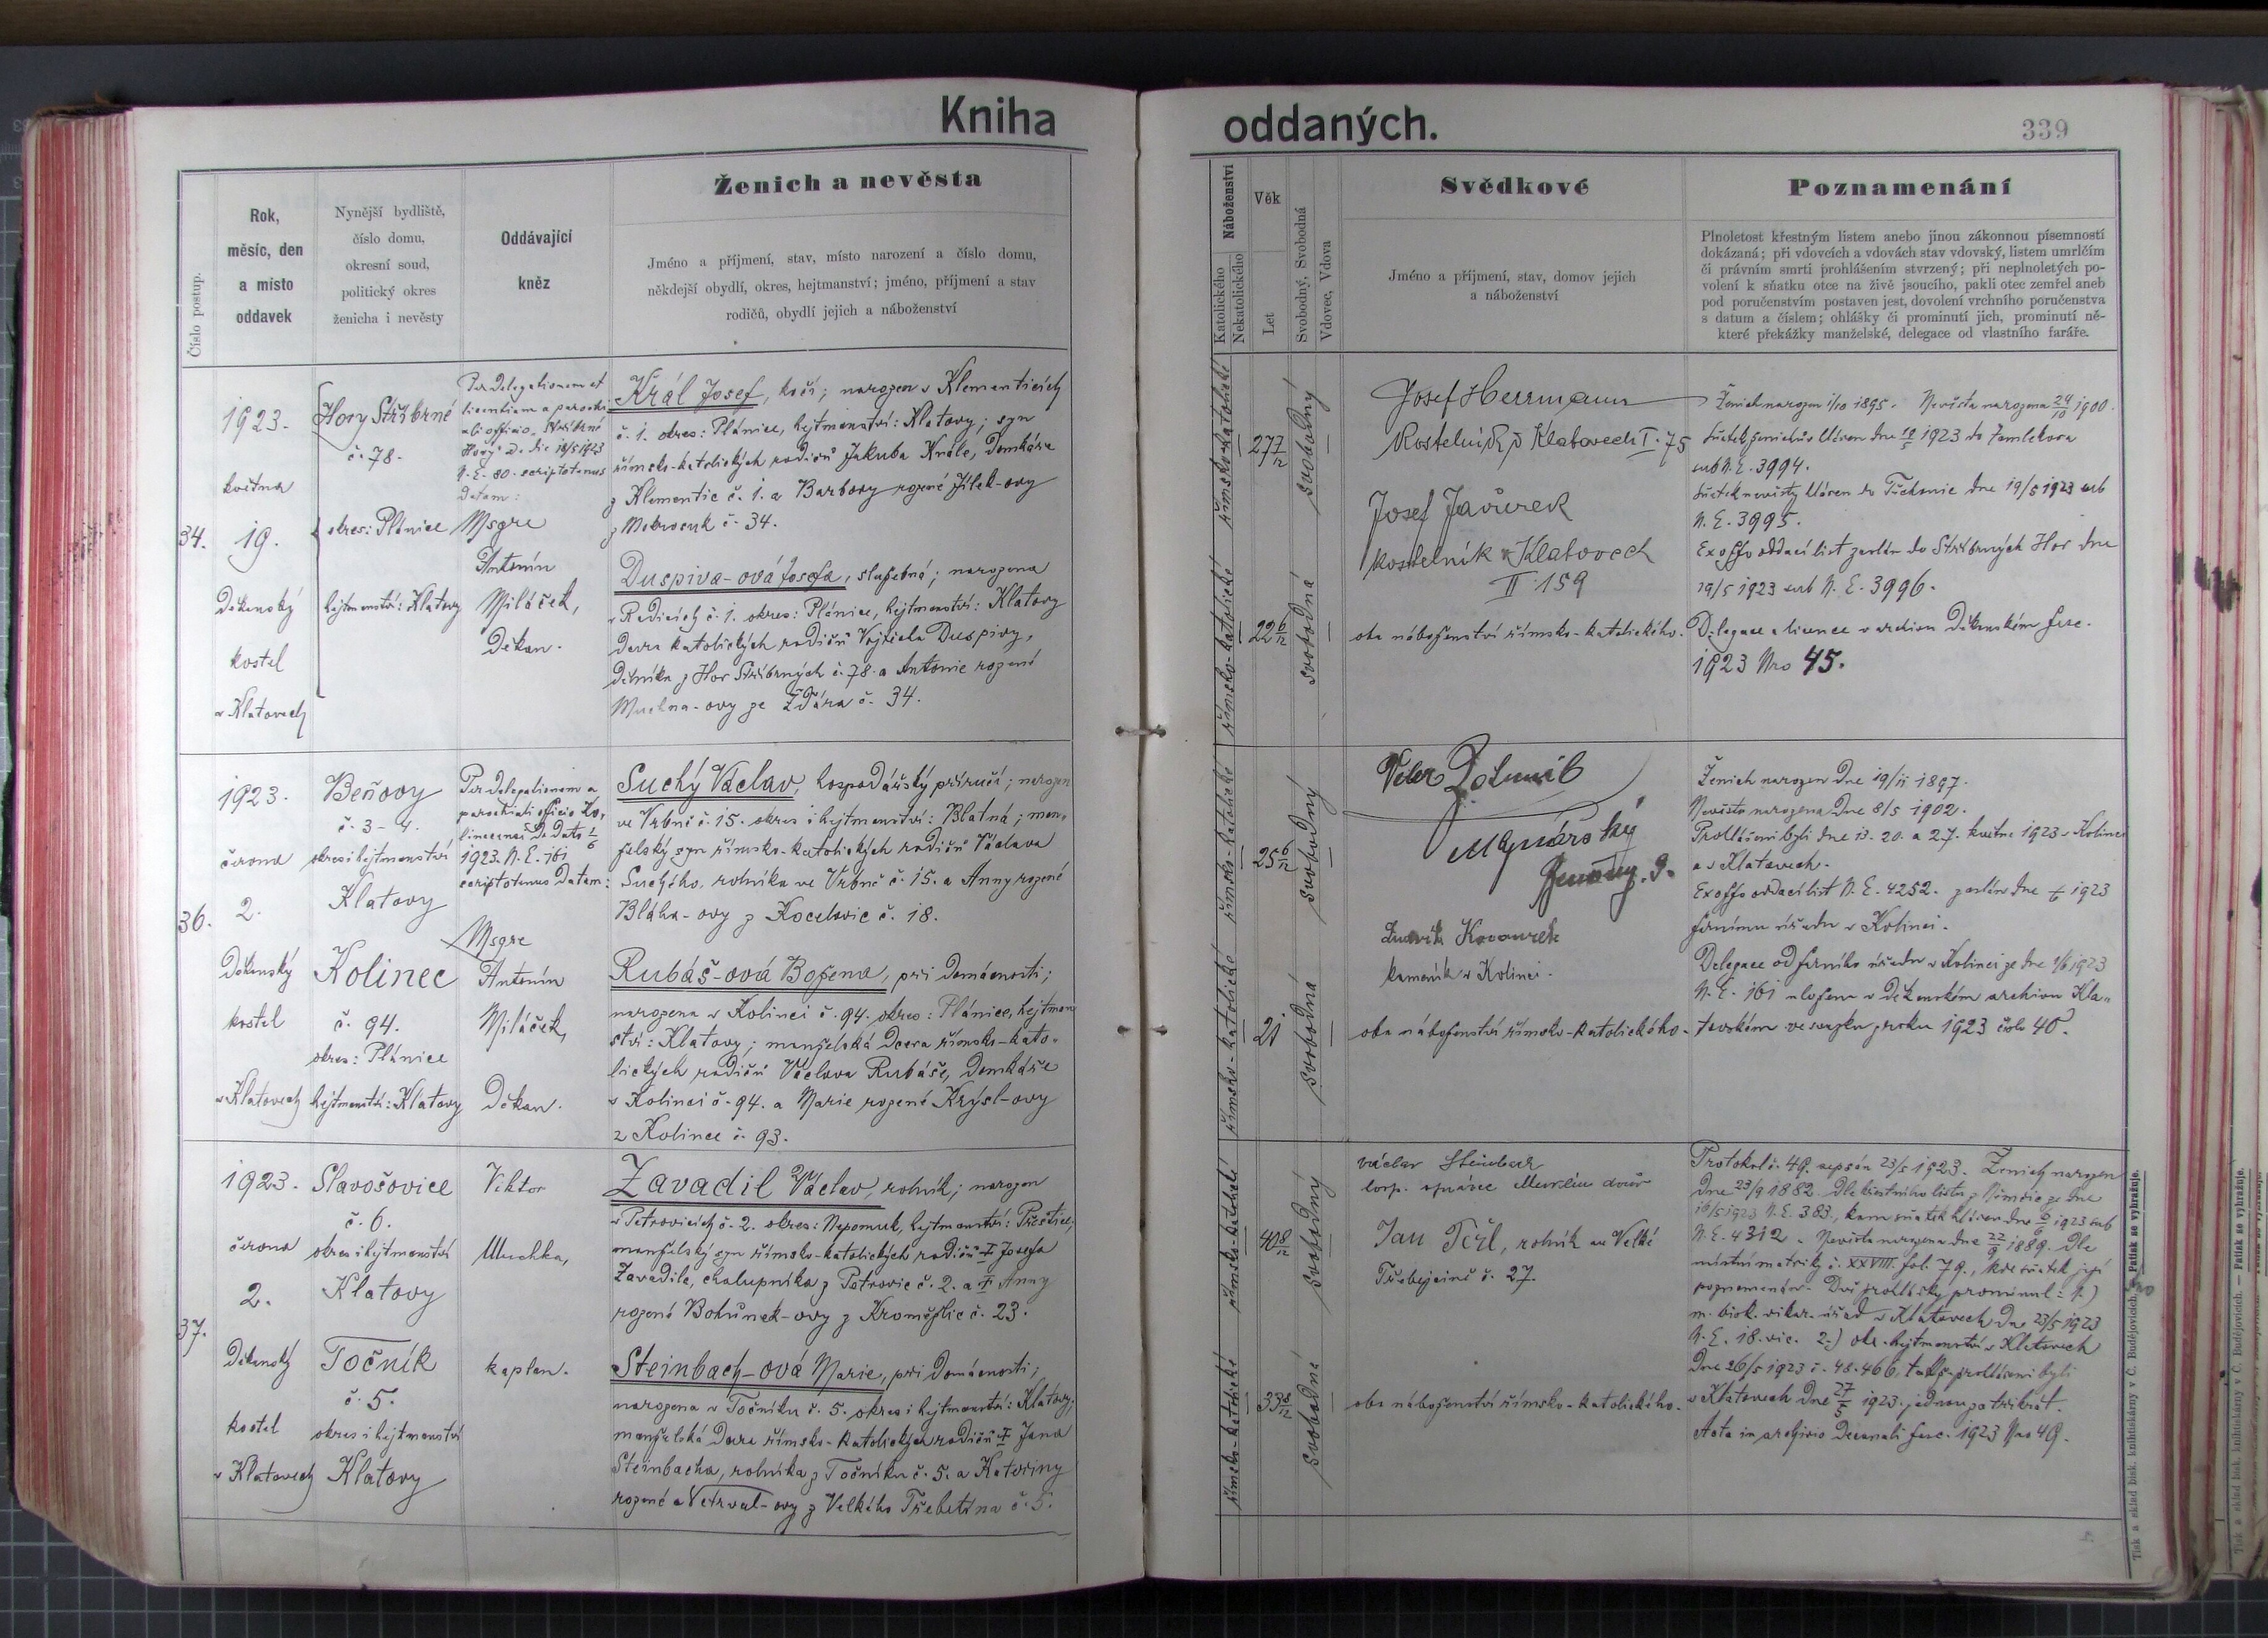 Kniha
oddaných.
339
Číslo postup.
Rok,
měsíc, den
a místo
oddavek
Nynější bydliště,
číslo domu,
okresní soud,
politický okres
ženicha i nevěsty
Oddávající
kněz
Ženich a nevěsta
Jméno a příjmení, stav, místo narození a číslo domu,
někdejší obydlí, okres, hejtmanství; jméno, příjmení a stav
rodičů, obydlí jejich a náboženství
Náboženství
Katolického
Nekatolického
Věk
Let
Svobodný, Svobodná
Vdovec, Vdova
Svědkové
Jméno a příjmení, stav, domov jejich
a náboženství
Poznamenání
Plnoletost křestným listem anebo jinou zákonnou písemností
dokázaná; při vdovcích a vdovách stav vdovský, listem umrlčím
či právním smrti prohlášením stvrzený; při neplnoletých po-
volení k sňatku otce na živě jsoucího, pakli otec zemřel aneb
pod poručenstvím postaven jest, dovolení vrchního poručenstva
s datum a číslem; ohlášky či prominutí jich, prominutí ně-
které překážky manželské, delegace od vlastního faráře.
34.
1923.
května
19.
Děkanský
kostel
v Klatovech
Hory Stříbrné
č. 78.
okres: Plánice
hejtmanství: Klatovy
Per delegationem et
licentiam a parochi-
ali officio Stříbrné
Hory d. die 18/5 1923
N. E. 80. scriptotenus
datam:
Msgre
Antonín
Miláček,
děkan.
Král Josef, kočí; narozen v Klementicích
č. 1. okres: Plánice, hejtmanství: Klatovy; syn
římsko-katolických rodičů Jakuba Krále, domkáře
z Klementic č. 1. a Barbory rozené Jílek-ovy
z Mokrosuk č. 34.
Duspiva-ová Josefa, služebná; narozena
v Radicích č. 1. okres: Plánice, hejtmanství: Klatovy
dcera katolických rodičů Vojtěcha Duspivy,
dělníka z Hor Stříbrných č. 78. a Antonie rozené
Muchna-ovy ze Žďára č. 34.
římsko-katolické
římsko-katolické
27 7/12
22 6/12
svobodný
svobodná
Josef Herrmann
Kostelník v Klatovech I. 75
Josef Javůrek
kostelník v Klatovech
II 159
oba náboženství římsko-katolického.
Ženich narozen 1/10 1895. Nevěsta narozena 24/10 1900.
Sňatek ženichův hlášen dne 19/5 1923 do Zamlekova
sub N. E. 3994.
Sňatek nevěsty hlášen do Těchonic dne 19/5 1923 sub
N. E. 3995.
Exoffo oddací list zaslán do Stříbrných Hor dne
19/5 1923 sub N. E. 3996.
Delegace a licence v archivu děkanském fasc.
1923 Nro 45.
36.
1923.
června
2.
Děkanský
kostel
v Klatovech
Beňovy
č. 3-4.
okres i hejtmanství
Klatovy
Kolinec
č. 94.
okres: Plánice
hejtmanství: Klatovy
Per delegationem a
parochiali officio Ko-
linecensi de dato 1/6
1923. N. E. 161
scriptotenus datam:
Msgre
Antonín
Miláček,
děkan.
Suchý Václav, hospodářský příručí; narozen
ve Vrbně č. 15. okres i hejtmanství: Blatná; man-
želský syn římsko-katolických rodičů Václava
Suchého, rolníka ve Vrbně č. 15. a Anny rozené
Bláha-ovy z Kocelovic č. 18.
Rubáš-ová Božena, při domácnosti;
narozena v Kolinci č. 94. okres: Plánice, hejtman-
ství: Klatovy; manželská dcera římsko-kato-
lických rodičů Václava Rubáše, domkáře
v Kolinci č. 94. a Marie rozené Krýsl-ovy
z Kolince č. 93.
římsko-katolické
římsko-katolické
25 6/12
21
svobodný
svobodná
Ludvík Kocourek
kameník v Kolinci.
oba náboženství římsko-katolického.
Ženich narozen dne 19/11 1897.
Nevěsta narozena dne 8/5 1902.
Prohlášeni byli dne 13. 20. a 27. května 1923 v Kolinci
a v Klatovech.
Exoffo oddací list N. E. 4252. zaslán dne 4/6 1923
farnímu úřadu v Kolinci.
Delegace od farního úřadu v Kolinci ze dne 1/6 1923
N. E. 161 uložena v děkanském archivu Kla-
tovském ve svazku z roku 1923 číslo 40.
37.
1923.
června
2.
Děkanský
kostel
v Klatovech
Slavošovice
č. 6.
okres i hejtmanství
Klatovy
Točník
č. 5.
okres i hejtmanství
Klatovy
Viktor
Muchka,
kaplan.
Zavadil Václav, rolník; narozen
v Petrovicích č. 2. okres: Nepomuk, hejtmanství: Přeštice,
manželský syn římsko-katolických rodičů † Josefa
Zavadila, chalupníka z Petrovic č. 2. a † Anny
rozené Bohůnek-ovy z Kroměždic č. 23.
Steinbach-ová Marie, při domácnosti;
narozena v Točníku č. 5. okres i hejtmanství: Klatovy;
manželská dcera římsko-katolických rodičů † Jana
Steinbacha, rolníka z Točníku č. 5. a Kateřiny
rozené Větrval-ovy z Velkého Třebetína č. 5.
římsko-katolické
římsko-katolické
40 8/12
33 8/12
svobodný
svobodná
Václav Steinbach
hosp. správce
Jan Terl, rolník ve Velké
Třebýcině č. 27.
oba náboženství římsko-katolického.
Protokol č. 49. sepsán 23/5 1923. Ženich narozen
dne 23/9 1882. Dle křestního listu z ze dne
16/5 1923 N. E. 383., kam sňatek hlášen dne 6/6 1923 sub
N. E. 4312. Nevěsta narozena dne 22/9 1889. dle
místní matriky č. XXVIII. fol. 79., kde sňatek její
poznamenán. Dvě prohlášky prominul: 1.)
m. bisk. vikar. úřad v Klatovech dne 23/5 1923
N. E. 18. vic. 2.) okr. hejtmanství v Klatovech
dne 26/5 1923 č. 48.466, takže prohlášeni byli
v Klatovech dne 27/5 1923. jednou za třikrát.
Acta in archivio decanali fasc. 1923 Nro 49.
Tisk a sklad bisk. knihtiskárny v Č. Budějovicích. — Patisk se vyhražuje.